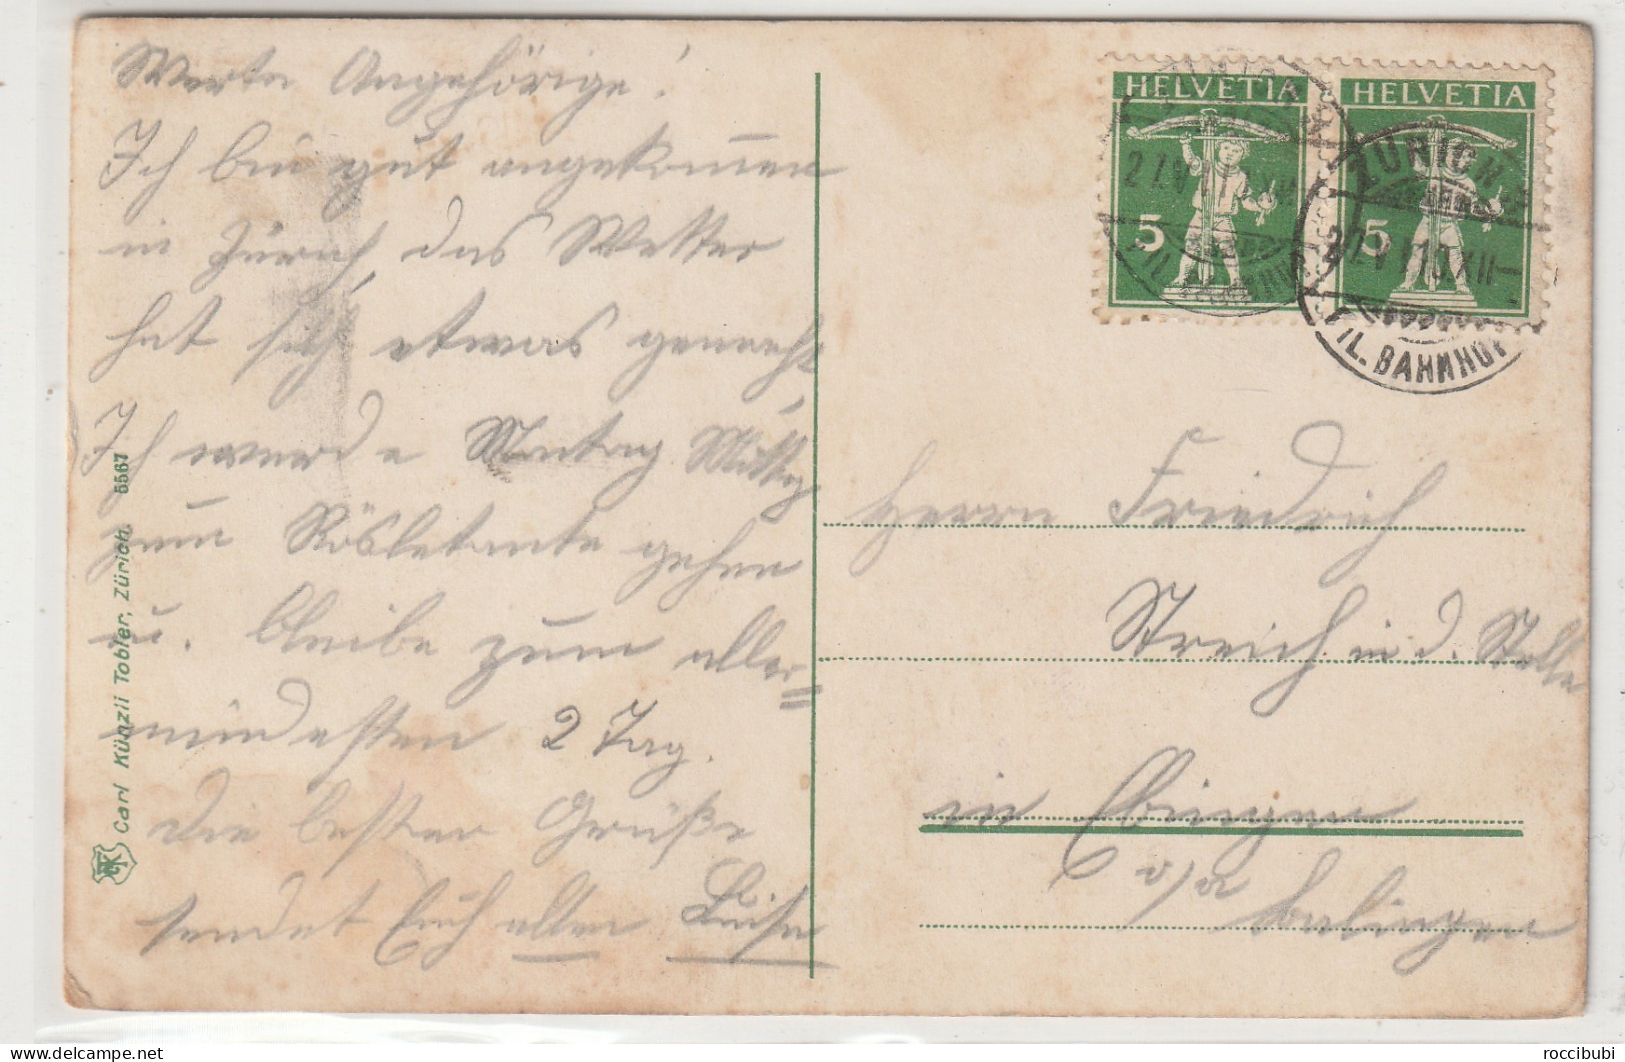 Werte Angehörige!
Ich bin gut angekommen
in Zürich, das Wetter
hat sich etwas gemacht,
Ich werde Montag Mittag
zum Rösletante gehen
u. bleibe zum aller=
mindesten 2 Tag.
Die besten Grüße
sendet Euch allen Luise
Carl Künzli Tobler, Zürich. 5567
HELVETIA
5
HELVETIA
5
ZÜRICH
BAHNHOF
Herrn Friedrich
Streich in d. Stelle
in Ebingen
o/a Balingen
roccibubi